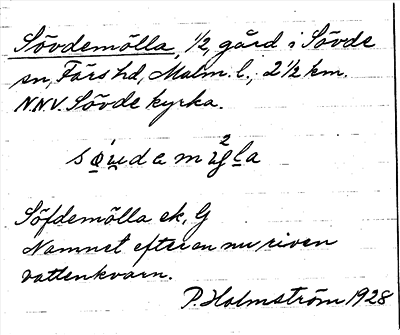 Sövdemölla, 1/2, gård i Sövde
sn, Färs hd, Malm. l., 2 1/2 km.
N.N.V. Sövde kyrka.
Söfdemölla ek, G
Namnet efter en nu riven
vattenkvarn.
P. Holmström 1928